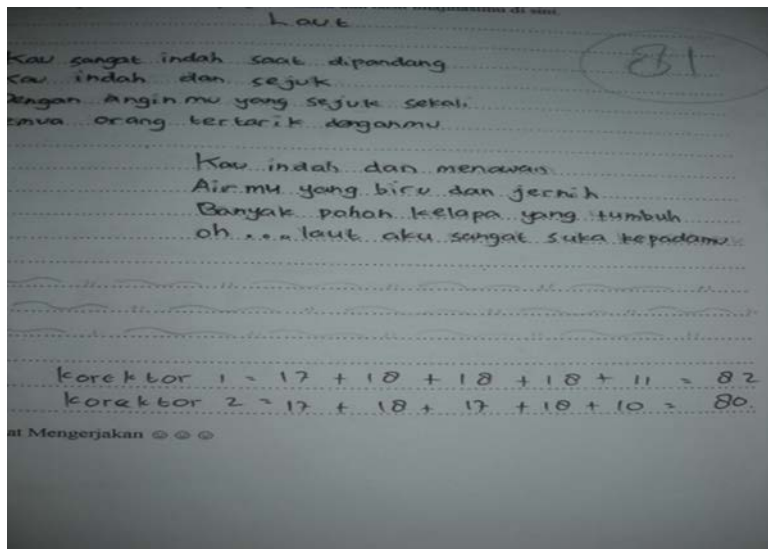 di sini.
Laut
81
Kau sangat indah saat dipandang
Kau indah dan sejuk
Dengan anginmu yang sejuk sekali
emua orang tertarik denganmu
Kau indah dan menawan
Airmu yang biru dan jernih
Banyak pohon kelapa yang tumbuh
oh .... laut aku sangat suka kepadamu
korektor 1 = 17 + 18 + 18 + 18 + 11 = 82
korektor 2 = 17 + 18 + 17 + 18 + 10 = 80.
at Mengerjakan ☺☺☺